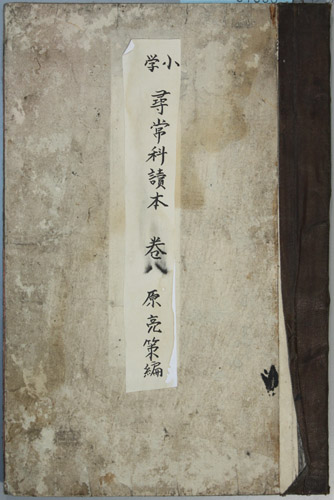 小学
尋常科讀本 卷八 原亮策編